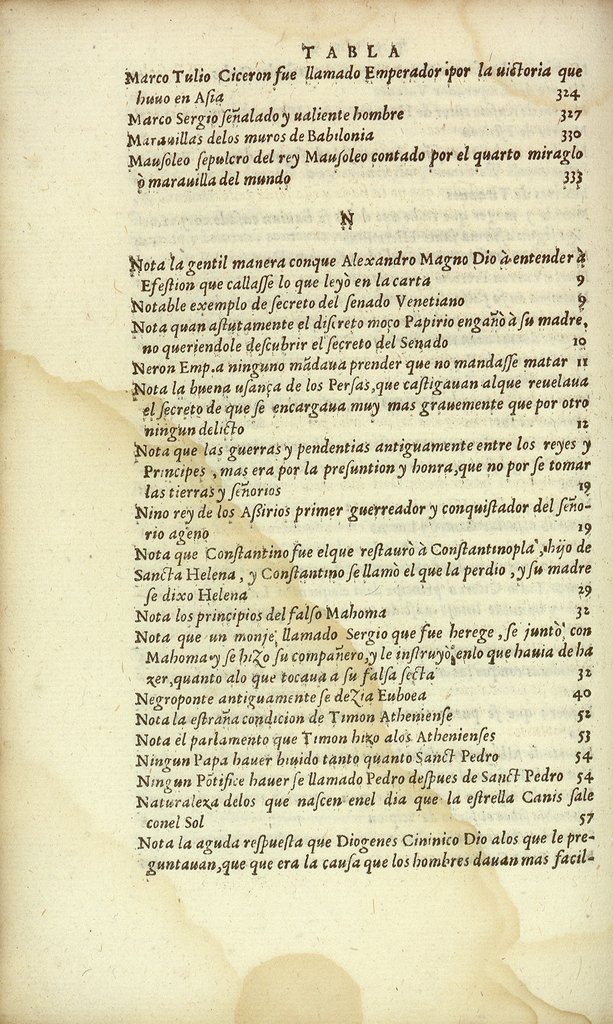 TABLA
Marco Tulio Ciceron fue llamado Emperador por la uictoria que
huuo en Asia 324
Marco Sergio señalado y ualiente hombre 327
Marauillas delos muros de Babilonia 330
Mausoleo sepulcro del rey Mausoleo contado por el quarto miraglo
ò marauilla del mundo 333
N
Nota la gentil manera conque Alexandro Magno Dio à entender à
Efestion que callasse lo que leyò en la carta 9
Notable exemplo de secreto del senado Venetiano 9
Nota quan astutamente el discreto moço Papirio engañò à su madre,
no queriendole descubrir el secreto del Senado 10
Neron Emp.a ninguno mãdaua prender que no mandasse matar 11
Nota la buena usança de los Persas, que castigauan alque reuelaua
el secreto de que se encargaua muy mas grauemente que por otro
ningun delicto 12
Nota que las guerras y pendentias antiguamente entre los reyes y
Principes, mas era por la presuntion y honra, que no por se tomar
las tierras y señorios 19
Nino rey de los Asirios primer guerreador y conquistador del seño-
rio ageno 19
Nota que Constantino fue elque restaurò à Constantinopla, hijo de
Sancta Helena, y Constantino se llamò el que la perdio, y su madre
se dixo Helena 29
Nota los principios del falso Mahoma 32
Nota que un monje llamado Sergio que fue herege, se juntò con
Mahoma y se hizo su compañero, y le instruyò enlo que hauia de ha
zer, quanto alo que tocaua a su falsa secta 32
Negroponte antiguamente se dezia Euboea 40
Nota la estraña condicion de Timon Atheniense 52
Nota el parlamento que Timon hizo alos Athenienses 53
Ningun Papa hauer biuido tanto quanto Sanct Pedro 54
Ningun Põtifice hauer se llamado Pedro despues de Sanct Pedro 54
Naturaleza delos que nascen enel dia que la estrella Canis sale
conel Sol 57
Nota la aguda respuesta que Diogenes Cininico Dio alos que le pre-
guntauan, que que era la causa que los hombres dauan mas facil-